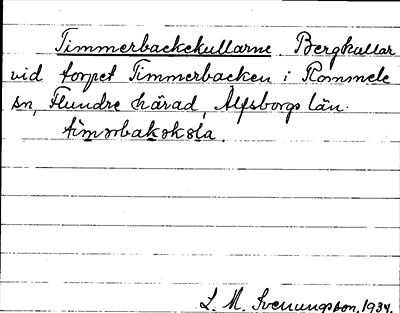 Timmerbackekullarne Bergkullar
vid torpet Timmerbacken i Rommele
sn, Flundre härad, Älfsborgs län.
timərbakəkəla.
L. M. Svenungsson, 1934.